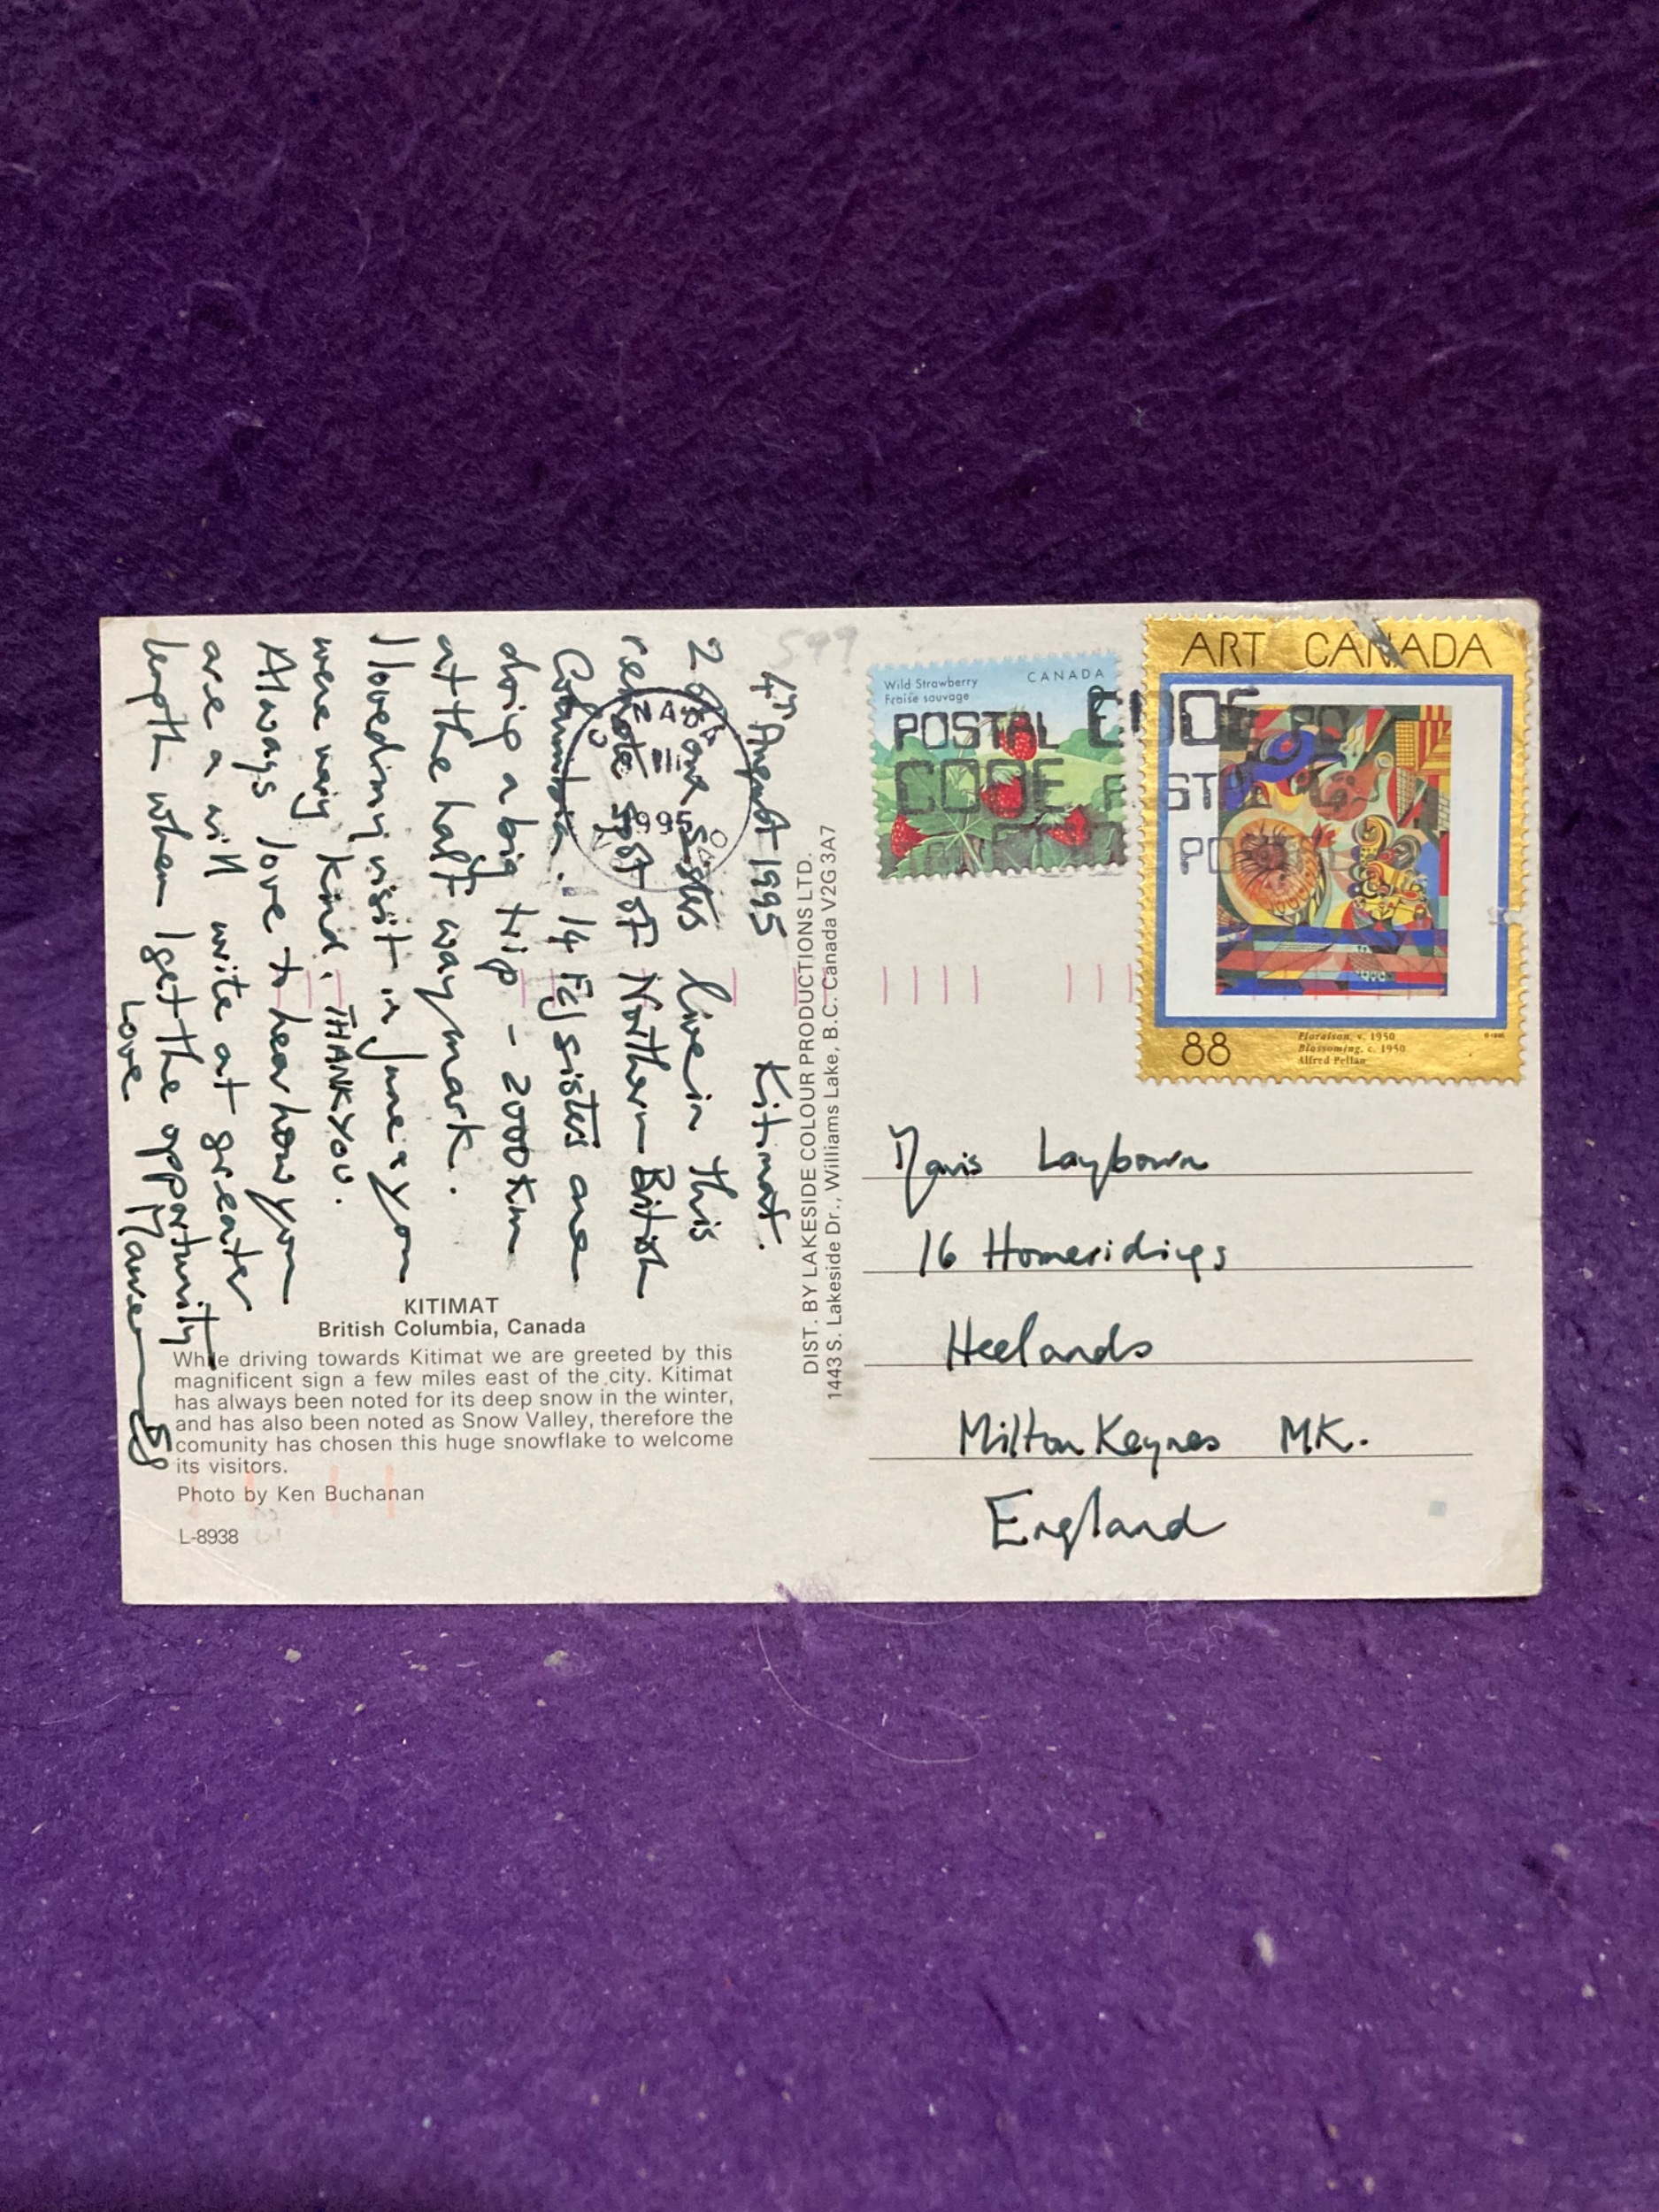 4th August 1995 Kitimat.
2 of our sisters live in this
remote spot of Northern British
Columbia. 14 FCJ sisters are
doing a big trip - 2000 km
at the half way mark.
I loved my visit in June & you
were very kind. THANK YOU.
Always love to hear how you
are & will write at greater
length when I get the opportunity
Love
KITIMAT
British Columbia, Canada
While driving towards Kitimat we are greeted by this
magnificent sign a few miles east of the city. Kitimat
has always been noted for its deep snow in the winter,
and has also been noted as Snow Valley, therefore the
comunity has chosen this huge snowflake to welcome
its visitors.
Photo by Ken Buchanan
L-8938
DIST. BY LAKESIDE COLOUR PRODUCTIONS LTD.
1443 S. Lakeside Dr., Williams Lake, B.C. Canada V2G 3A7
599
Wild Strawberry CANADA
Fraise sauvage
POSTAL
CODE
ART CANADA
88
Floraison, v. 1950
Blossoming, c. 1950
Alfred Pellan
Mavis Laybourn
16 Homeridings
Heelands
Milton Keynes MK.
England